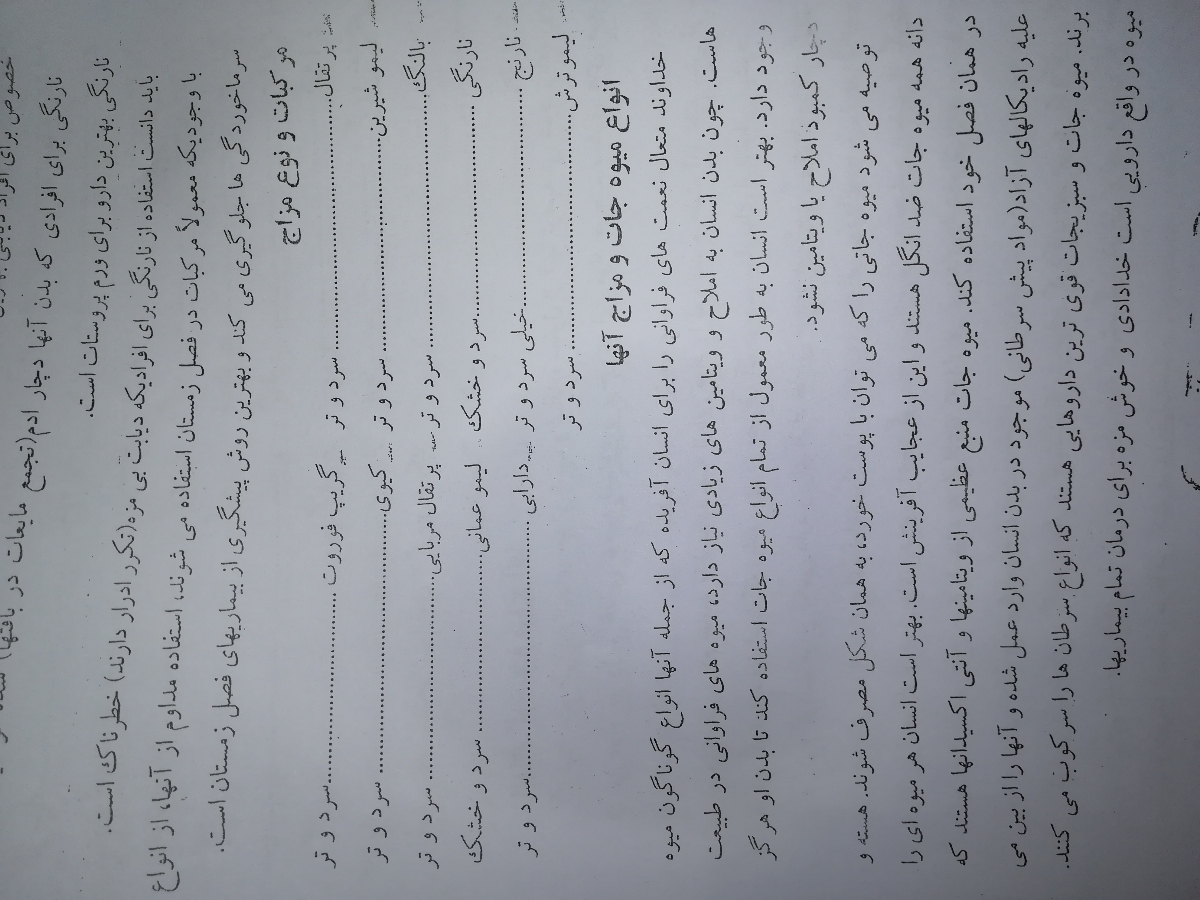 خصوص برای افراد دیابتی
نارنگی برای افرادی که بدن آنها دچار ادم(تجمع مایعات در بافتها)
نارنگی بهترین دارو برای ورم پروستات است.
باید دانست استفاده از نارنگی برای افرادیکه دیابت بی مزه(تکرر ادرار دارند) خطرناک است.
با وجودیکه معمولاً مرکبات در فصل زمستان استفاده می شوند، استفاده مداوم از آنها، از انواع
سرماخوردگی ها جلوگیری می کند و بهترین روش پیشگیری از بیماریهای فصل زمستان است.
مرکبات و نوع مزاج
پرتقال........ سرد و تر گریپ فوروت ........ سرد و تر
لیمو شیرین........ سرد و تر کیوی........ سرد و تر
بالنگ........ سرد و تر پرتقال مربایی........ سرد و تر
نارنگی ........ سرد و خشک لیمو عمانی........ سرد و خشک
نارنج ........ خیلی سرد و تر دارابی ........ سرد و تر
لیمو ترش........ سرد و تر
انواع میوه جات و مزاج آنها
خداوند متعال نعمت های فراوانی را برای انسان آفریده که از جمله آنها انواع گوناگون میوه
هاست. چون بدن انسان به املاح و ویتامین های زیادی نیاز دارد، میوه های فراوانی در طبیعت
وجود دارد. بهتر است انسان به طور معمول از تمام انواع میوه جات استفاده کند تا بدن او هرگز
دچار کمبود املاح یا ویتامین نشود.
توصیه می شود میوه جاتی را که می توان با پوست خورد، به همان شکل مصرف شوند. هسته و
دانه همه میوه جات ضد انگل هستند و این از عجایب آفرینش است. بهتر است انسان هر میوه ای را
در همان فصل خود استفاده کند. میوه جات منبع عظیمی از ویتامینها و آنتی اکسیدانها هستند که
علیه رادیکالهای آزاد(مواد پیش سرطانی) موجود در بدن انسان وارد عمل شده و آنها را از بین می
برند. میوه جات و سبزیجات قوی ترین داروهایی هستند که انواع سرطان ها را سرکوب می کنند.
میوه در واقع دارویی است خدادادی و خوش مزه برای درمان تمام بیماریها.